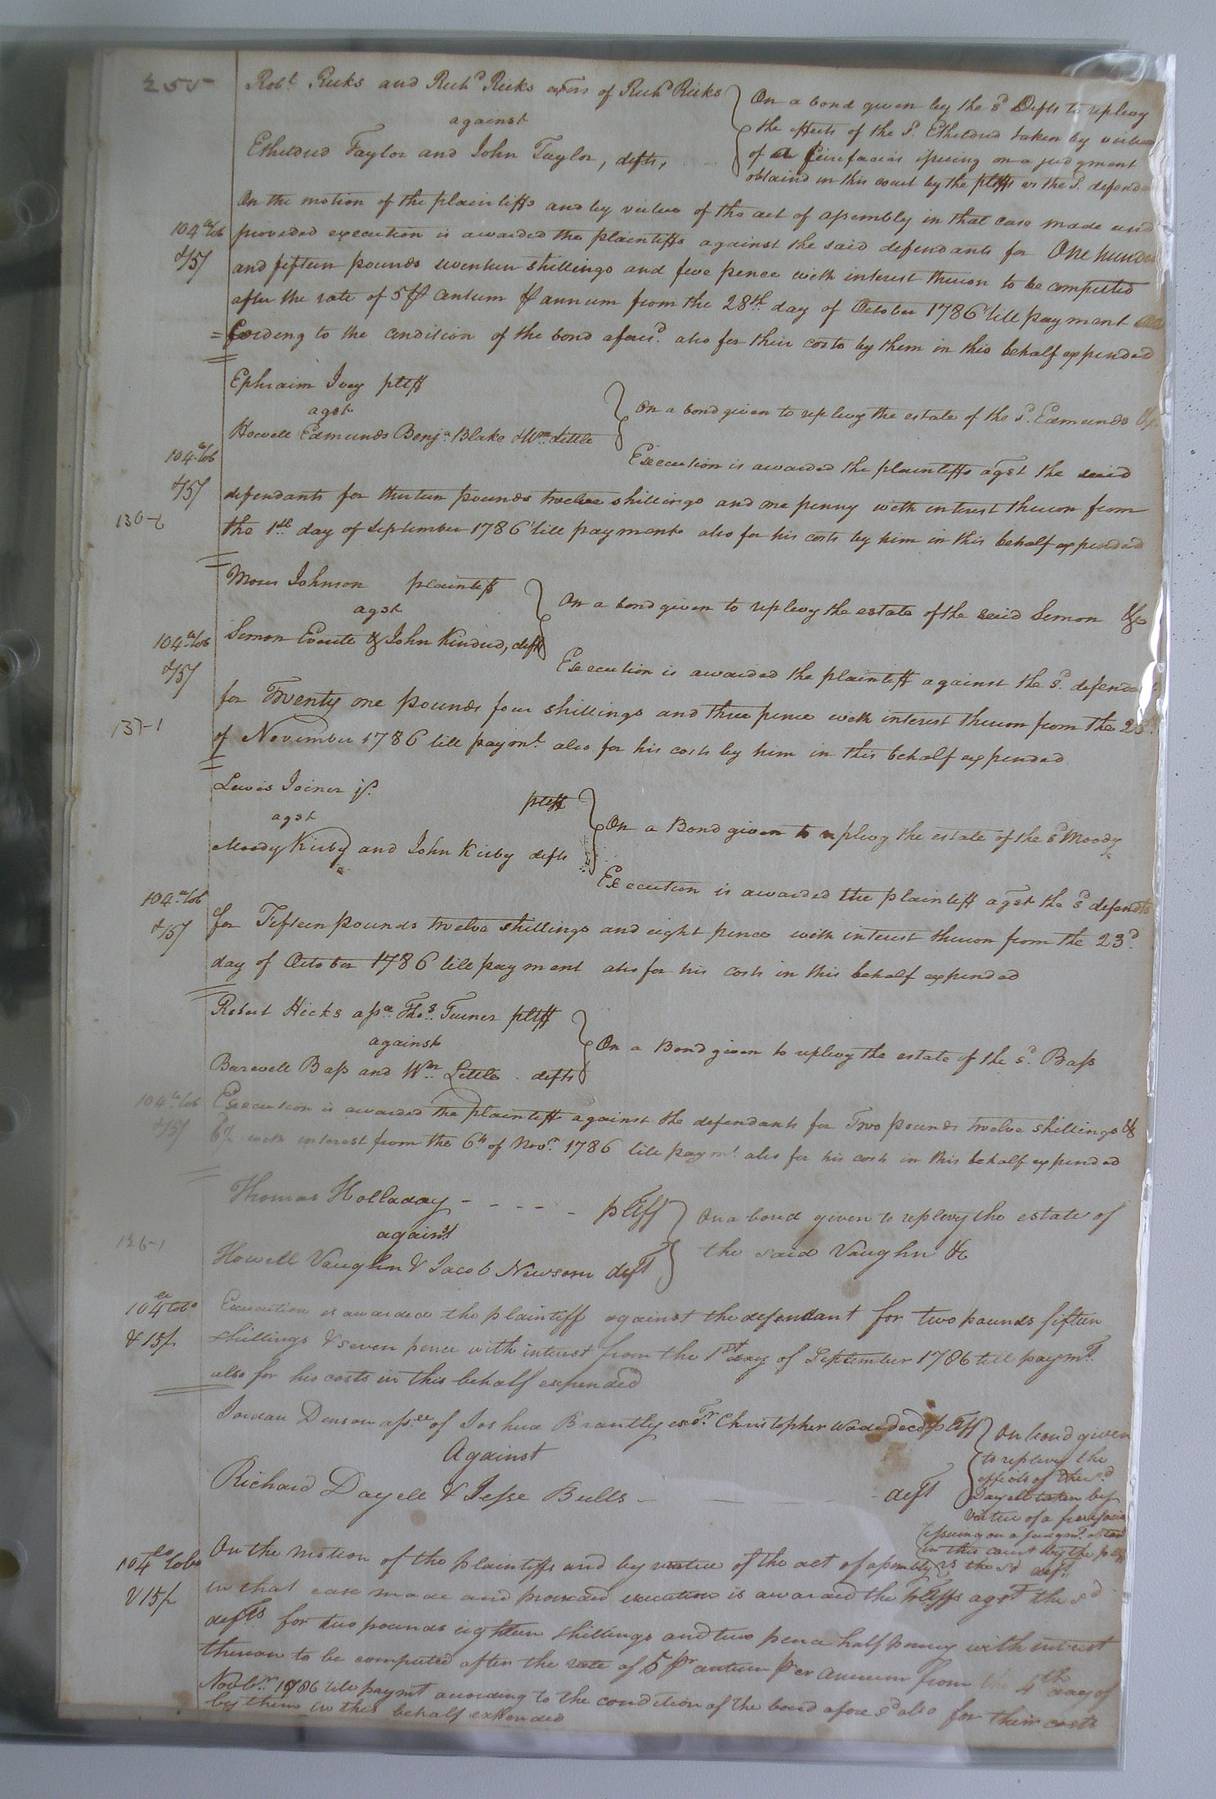 255
Rob.t Ricks and Rich.d Ricks exors of Rich.d Ricks
against
Etheldred Taylor and John Taylor, defts,
On a bond given by the s.d Defts to replevy
the effects of the s.d Etheldred taken by virtue
of a fierifacias issuing on a judgment
obtaind in this court by the pltffs vs the s.d defend
On the motion of the plaintiffs and by virtue of the act of assembly in that case made and
104 lb tob
&15/
provided execution is awarded the plaintiffs against the said defendants for One hundred
and fifteen pounds seventeen shillings and five pence with interest thereon to be computed
after the rate of 5 P centum P annum from the 28th day of October 1786 till payment
=cording to the condition of the bond afores.d also for their costs by them in this behalf expended
Ephraim Ivey pltff
agst
Howell Edmunds Benj.a Blake & Wm Little
On a bond given to replevy the estate of the s.d Edmunds &c
104 lb tob
&15/
130-6
Execution is awarded the plaintiffs agst the said
defendants for thirteen pounds twelve shillings and one penny with interest thereon from
the 1st day of September 1786 till payment also for his costs by him in this behalf expended
Moses Johnson plaintiff
agst
Simon Everite & John Kindred, defts
On a bond given to replevy the estate of the said Simon &c
104 lb tob
&15/
137-1
Execution is awarded the plaintiff against the s.d defendants
for Twenty one pounds four shillings and three pence with interest thereon from the 25th
of November 1786 till paym.t also for his costs by him in this behalf expended
Lewis Joiner jr. pltff
agst
Moody Kirby and John Kirby defts
On a Bond given to replevy the estate of the s.d Moody
104 lb tob
&15/
Execution is awarded the plaintiff agst the s.d defendts
for Fifteen pounds twelve shillings and eight pence with interest thereon from the 23.d
day of October 1786 till payment also for his costs in this behalf expended
Robert Hicks asse Tho.s Turner pltff
against
Barwell Bass and Wm Little defts
On a Bond given to replevy the estate of the s.d Bass
104 lb tob
&15/
Execution is awarded the plaintiff against the defendants for Two pounds twelve shillings &
6d with interest from the 6th of Nov.r 1786 till paym.t also for his costs in this behalf expended
Thomas Holladay - - - - - pltff
against
Howell Vaughn & Jacob Newsom deft
On a bond given to replevy the estate of
the said Vaughn &c
126-1
104 lb tobo
& 15/
Execution is awarded the plaintiff against the defendant for two pounds fifteen
shillings & seven pence with interest from the 1st day of September 1786 till paym.t
also for his costs in this behalf expended
Jordan Denson ass.ee of Joshua Brantly exor Christopher Wade decd pltff
Against
Richard Dayell & Jesse Bulls - - - deft
On bond given
to replevy the
effects of the s.d
Dayell taken by
virtue of a fierifacias
issuing on a judgm.t
in this court by the pltff
vs the sd deft
104 lb tobo
& 15/
On the motion of the plaintiffs and by virtue of the act of assembly
in that case made and provided execution is awarded the pltffs agst the sd
defts for two pounds eighteen shillings and two pence half penny with interest
thereon to be computed after the rate of 5 Pr centum Per annum from the 4th day of
Novbr. 1786 till paymt according to the condition of the bond afore sd also for their costs
by them in this behalf expended